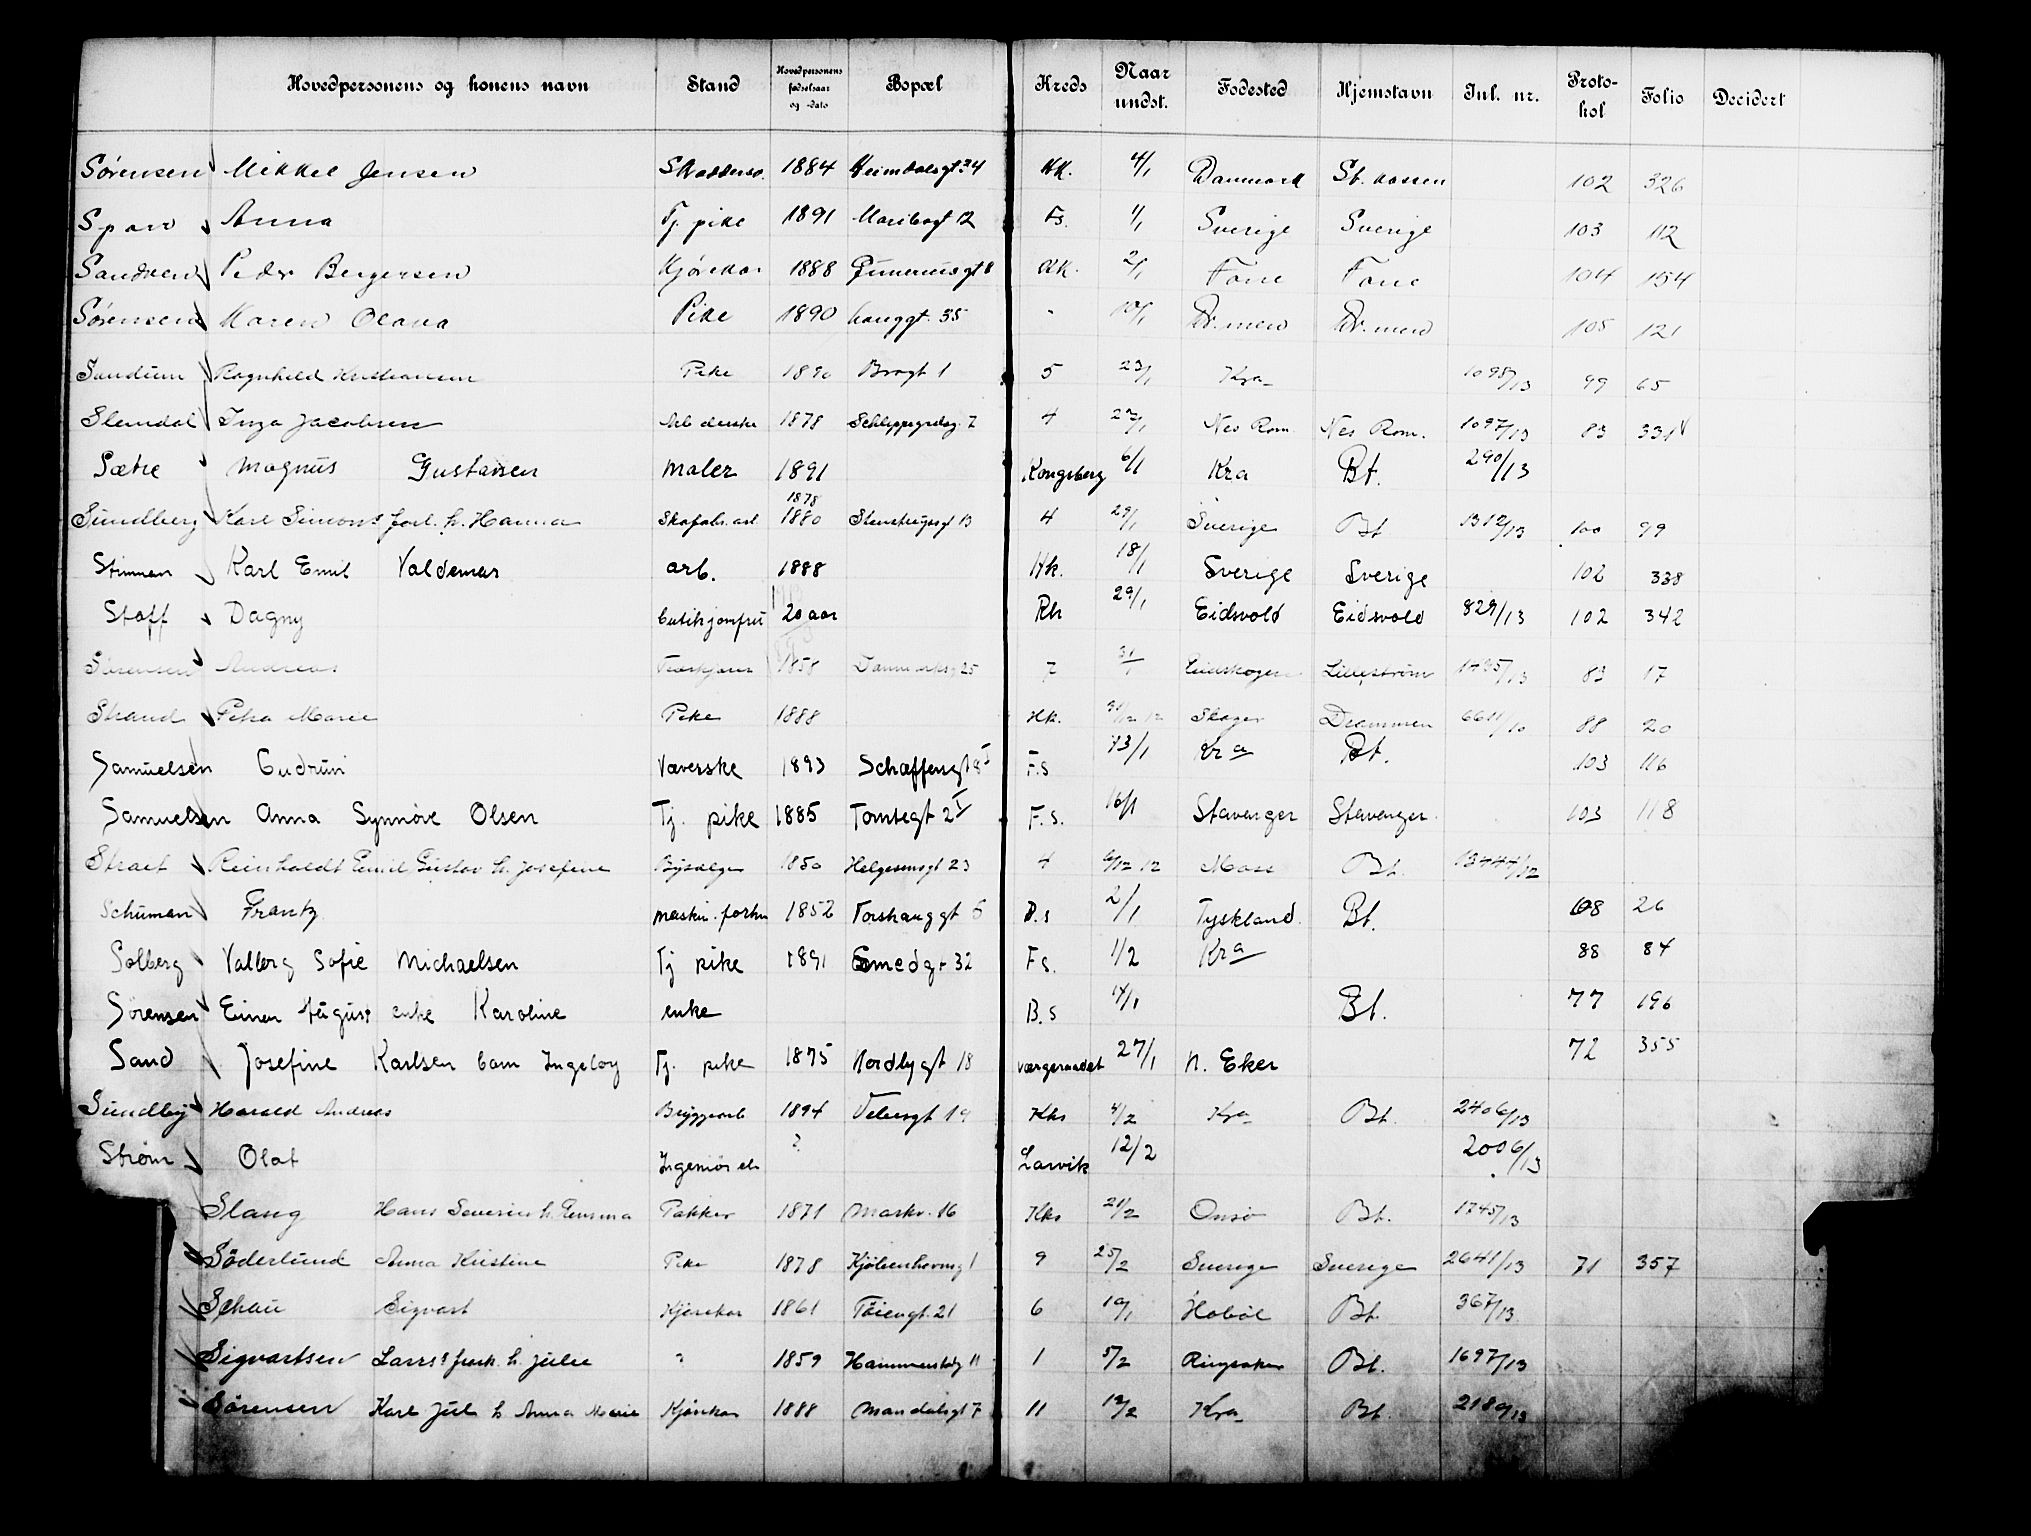 Hovedpersonens og konens navn Stand Hovedpersonens fødselsaar og -dato Bopæl Kreds Naar undst. Fødested Hjemstavn Jnl. nr. Protokol Folio Decidert
Sørensen Mikkel Jensen 1884 Heimdalsgt 24 Kk. 4/1 Danmark 102 326
Anna Tj. pike 1891 Maribogt 12 Fs. 1/1 Sverige Sverige 103 112
Sandven Peder Bergersen Kjørekar 1888 Guneriusgt 8 Kk. 2/1 104 154
Sørensen Karen Olava Pike 1890 Langgt. 35 " 10/1 Dr.men Dr.men 105 121
Sundum Ragnhild Kristiansen Pike 1890 Brogt 1 5 23/1 Kra 1098/13 99 65
Slemdal Inga Jacobsen 1878 Schleppegrelsg. 7 4 27/1 Nes Rom. Nes Rom. 1097/13 83 331
Sætre Magnus Gustavsen Maler 1891 Kongsberg 6/1 Kra Bt. 290/13
Sundberg Karl Simons fork. h. Hanna Skofabr. arb 1878 1880 Stenstrupsgt 13 4 29/1 Sverige Bt 1312/13 100 99
Stinman Karl Emil Valdemar arb. 1888 Hk. 18/1 Sverige Sverige 102 338
Staff Dagny butikjomfru 20 aar Rh 29/1 Eidsvold Eidsvold 829/13 102 342
Sørensen Andreas 1858 Danmarksg 25 7 31/1 Eidskogen Lillestrøm 1435/13 83 17
Strand Petra Marie Pike 1888 Hk. 31/12 12 Skoger Drammen 6611/10 88 20
Samuelsen Gudrun Væverske 1893 Schæffersgt 8 I F.s 13/1 Kra Bt. 103 116
Samuelsen Anna Synnøve Olsen Tj. pike 1885 Tomtegt 2 I F.s. 16/1 Stavanger Stavanger 103 118
Reinholdt Emil Gustav h. Josefine Bysælger 1850 Helgesensgt 23 4 6/12 12 Moss Bt. 13444/12
Schuman Frantz maskin. forhn 1852 Torshauggt 5 B.s 2/1 Tyskland Bt. 68 26
Solberg Valborg Sofie Michaelsen Tj pike 1891 Smedgt 32 Fs. 1/2 Kra 88 84
Sørensen Einar August enke Karoline enke B.s 14/1 Bt. 77 196
Sand Josefine Karlsen barn Ingeborg Tj. pike 1875 Nordbygt 18 værgeraadet 27/1 N. Eker 72 355
Sundby Harald Andreas Bryggearb 1894 Vebersgt 19 Kks 4/2 Kra Bt. 2406/13
Strøm Olaf Ingeniør el. ? Larvik 12/2 2006/13
Slang Hans Severin h. Emma Pakker 1871 Markv. 16 Kks 21/2 Onsø Bt. 1745/13
Söderlund Anna Kristine Pike 1878 9 25/2 Sverige Sverige 2641/13 71 357
Schau Sigvart Kjørekar 1861 Tøiengt. 21 6 10/1 Hobøl Bt. 367/13
Sigvartsen Lars fork. h. Julie " 1859 Hammerstadg 11 1 5/2 Ringsaker Bt. 1697/13
Sørensen Karl Jul h Anna Marie Kjørekar 1888 Mandalsgt 7 11 19/2 Kra Bt. 2180/13